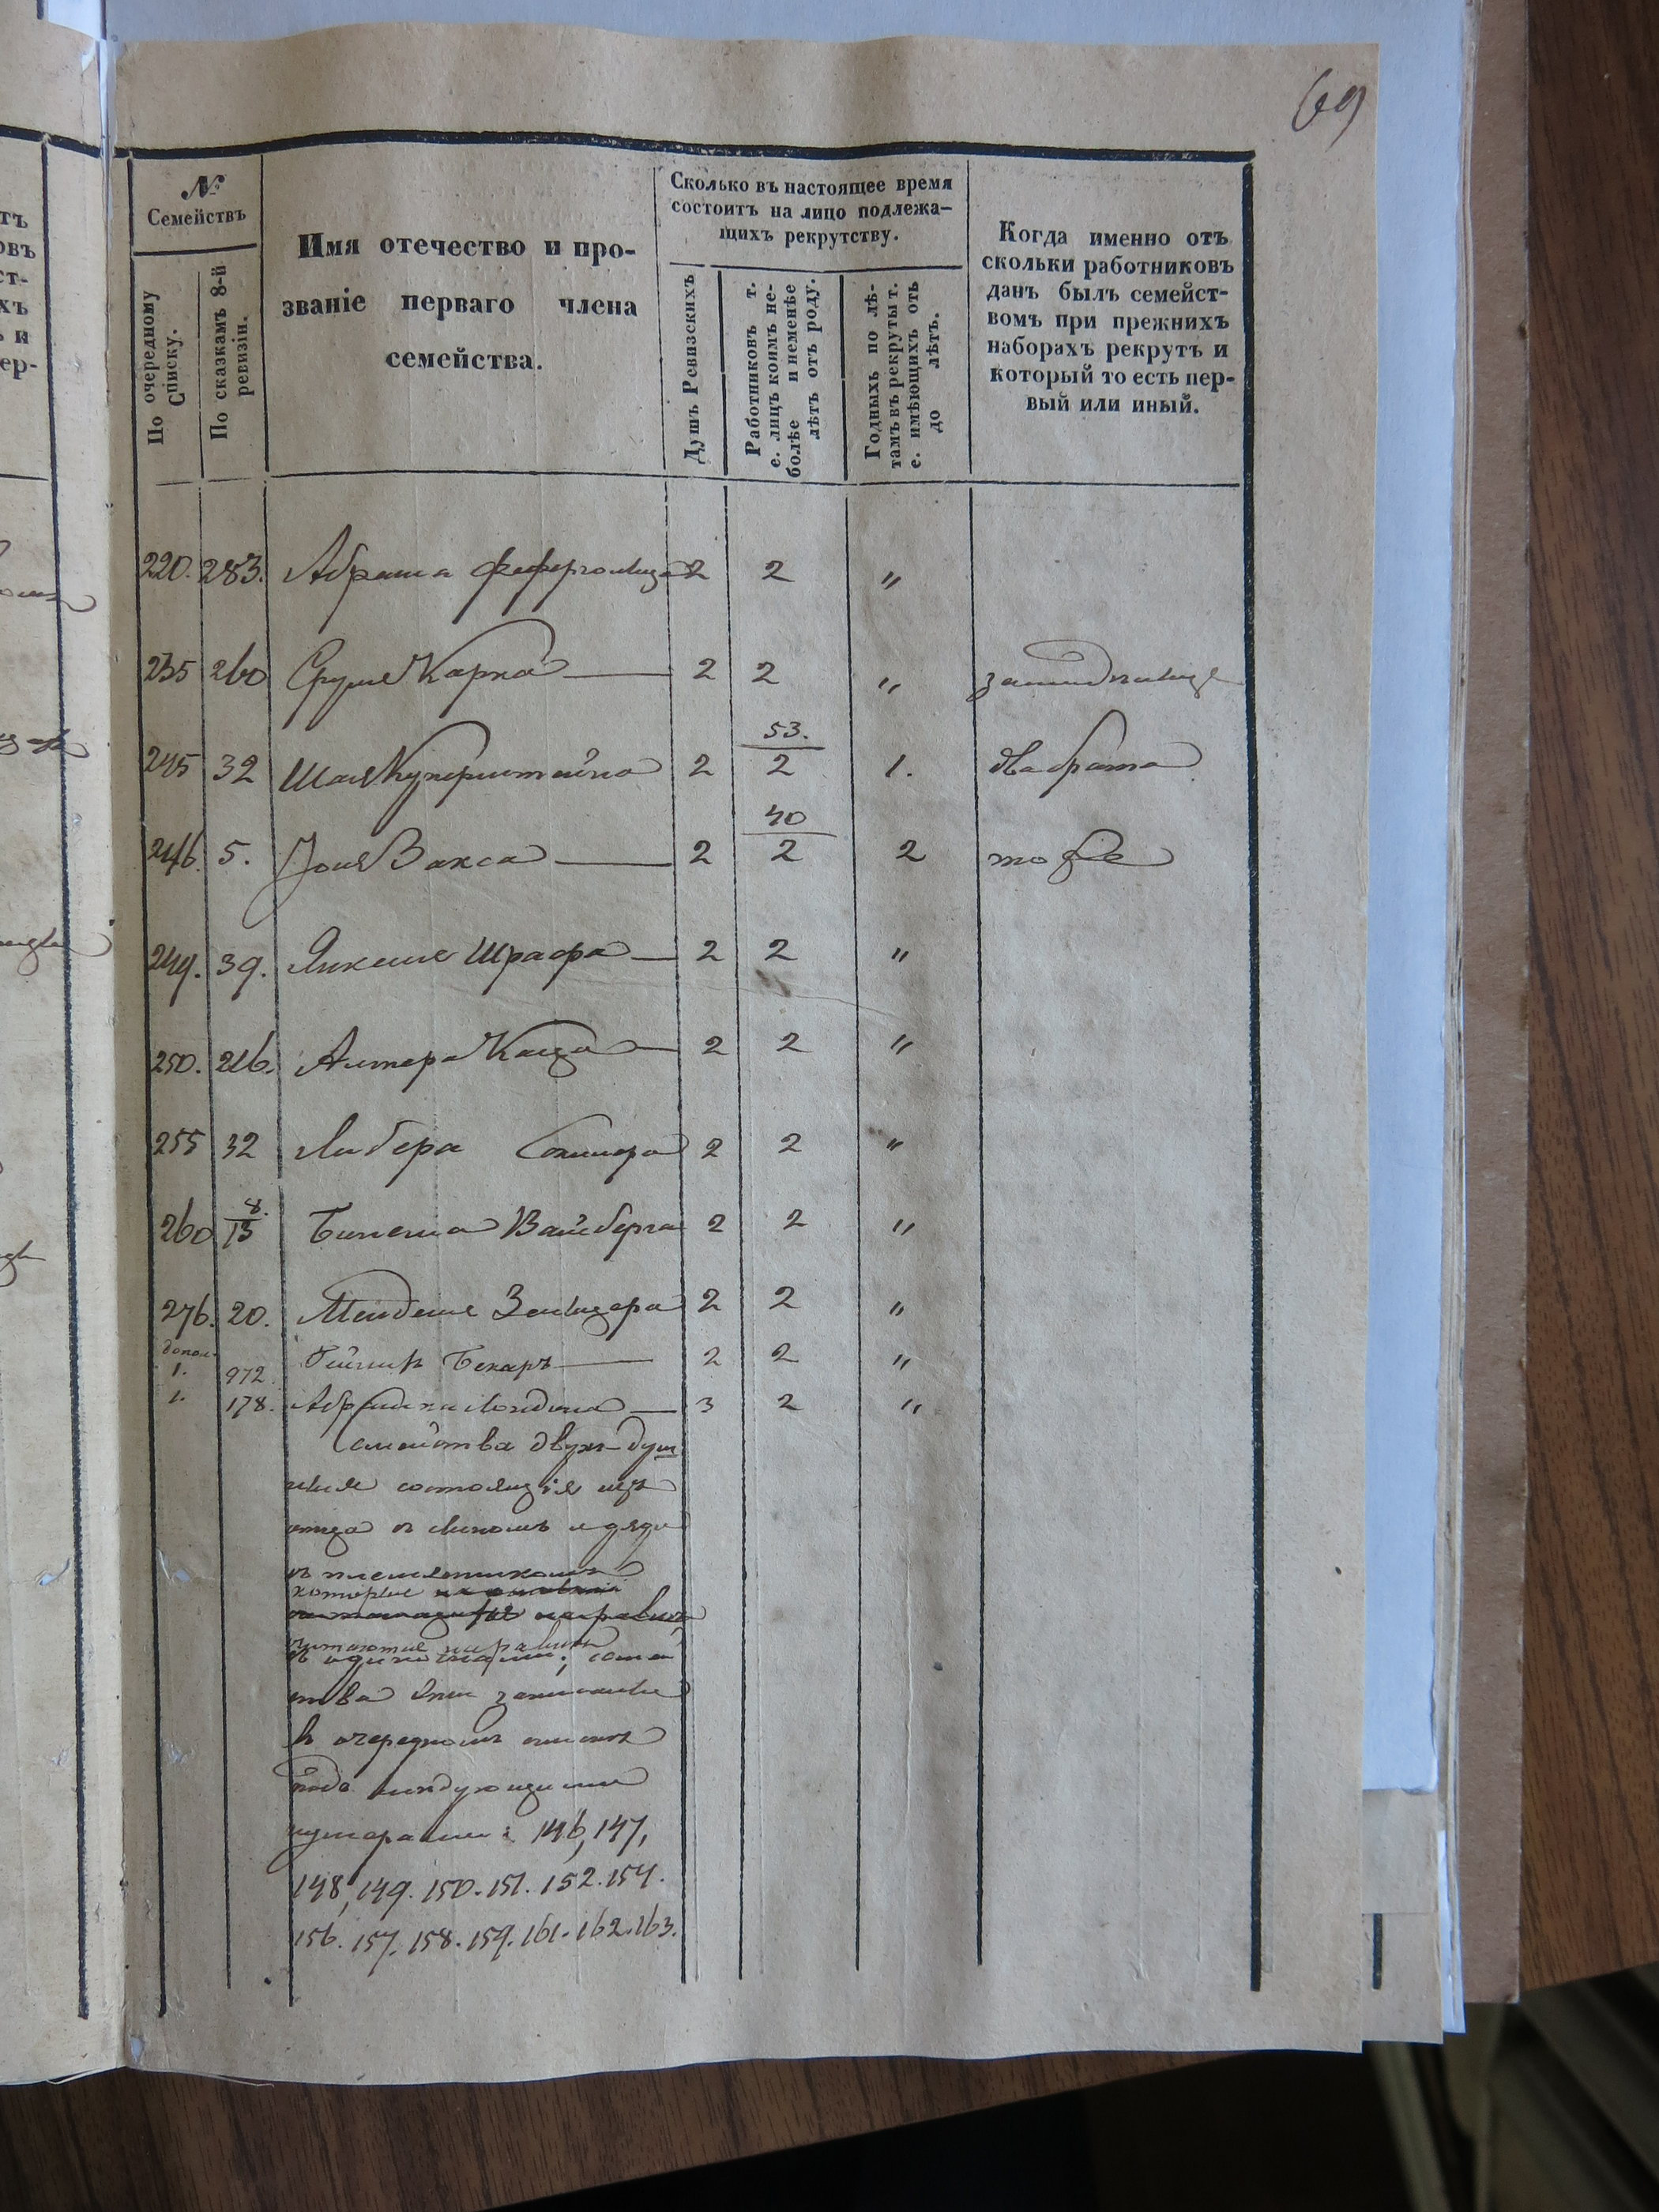 69
№
Семействъ
По очередному
Списку.
По сказкамъ 8-й
ревизіи.
Имя отечество и про-
званіе перваго члена
семейства.
Сколько въ настоящее время
состоитъ на лицо подлежа-
щихъ рекрутству.
Душъ Ревизскихъ
Работниковъ т.
е. лицъ коимъ не-
болѣе и неменѣе
лѣтъ отъ роду.
Годныхъ по лѣ-
тамъ въ рекруты т.
е. имѣющихъ отъ
до лѣтъ.
Когда именно отъ
скольки работниковъ
данъ былъ семейст-
вомъ при прежнихъ
наборахъ рекрутъ и
который то есть пер-
вый или иный.
220. 283. Абрама 2 2 "
235 260 Сруля Карпа 2 2 "
53.
245 32 Шая Куперштейна 2 2 1. два брата
40
246. 5. Вакса 2 2 2 тоже
249. 39. Янкеля Шрафа 2 2 "
250. 216. Алтера Каца 2 2 "
255 32 Либера 2 2 "
8.
260 13 Вайсберга 2 2 "
276. 20. Менделя Зельцера 2 2 "
допол.
1. 972. Бекаръ 2 2 "
2. 178. 3 2 "
Семейства двухъ душ
ныя состоящія изъ
отца съ сыномъ и дяди
съ племянникомъ
которые
считаются наравнѣ
съ одиночками; семей
ства эти записаны
въ очередномъ спискѣ
подъ слѣдующими
нумерами: 146, 147,
148, 149. 150. 151. 152. 154.
156. 157. 158. 159. 161. 162. 163.